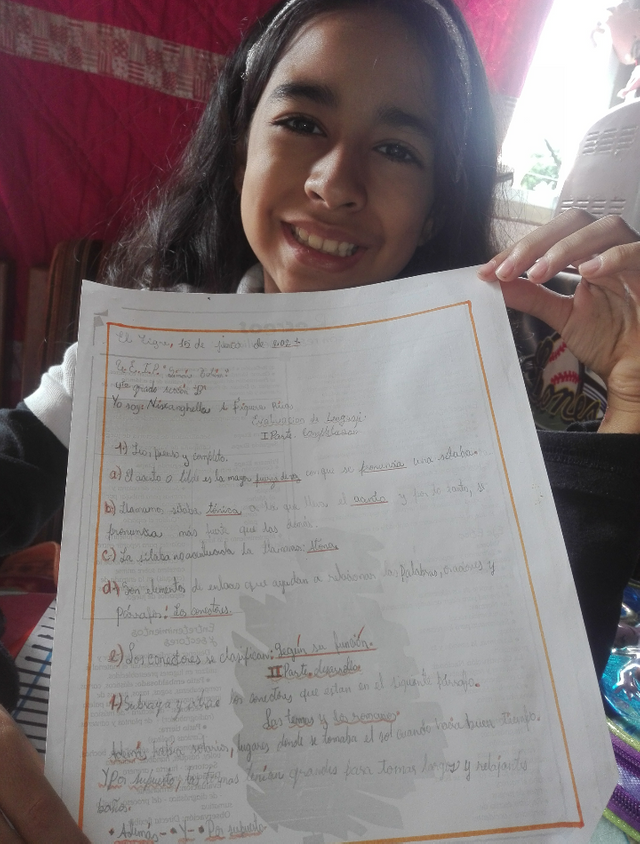 El Tigre, 16 de junio de 2021
4to grado sección "B"
Yo soy:
Evaluación de Lenguaje.
I Parte. Completación
1) Leo, pienso y completo.
a) El acento o tilde es la mayor fuerza de voz con que se pronuncia una sílaba.
b) Llamamos sílaba tónica a la que lleva el acento y por lo tanto, se
pronuncia más fuerte que las demás.
c) La sílaba no acentuada la llamamos: átona
d) Son elementos de enlace que ayudan a relacionar las palabras, oraciones y
Párrafos: Los conectores.
e) Los conectores se clasifican: Según su función.
II Parte. desarrollo
1) Subraya y extrae los conectores que estan en el siguiente párrafo.
Las termas y los romanos.
Además había solarios, lugares donde se tomaba el sol cuando hacía buen tiempo.
Y Por supuesto, las termas tenían grandes para tomar largos y relajantes
baños.
• Además - • Y - • Por supuesto